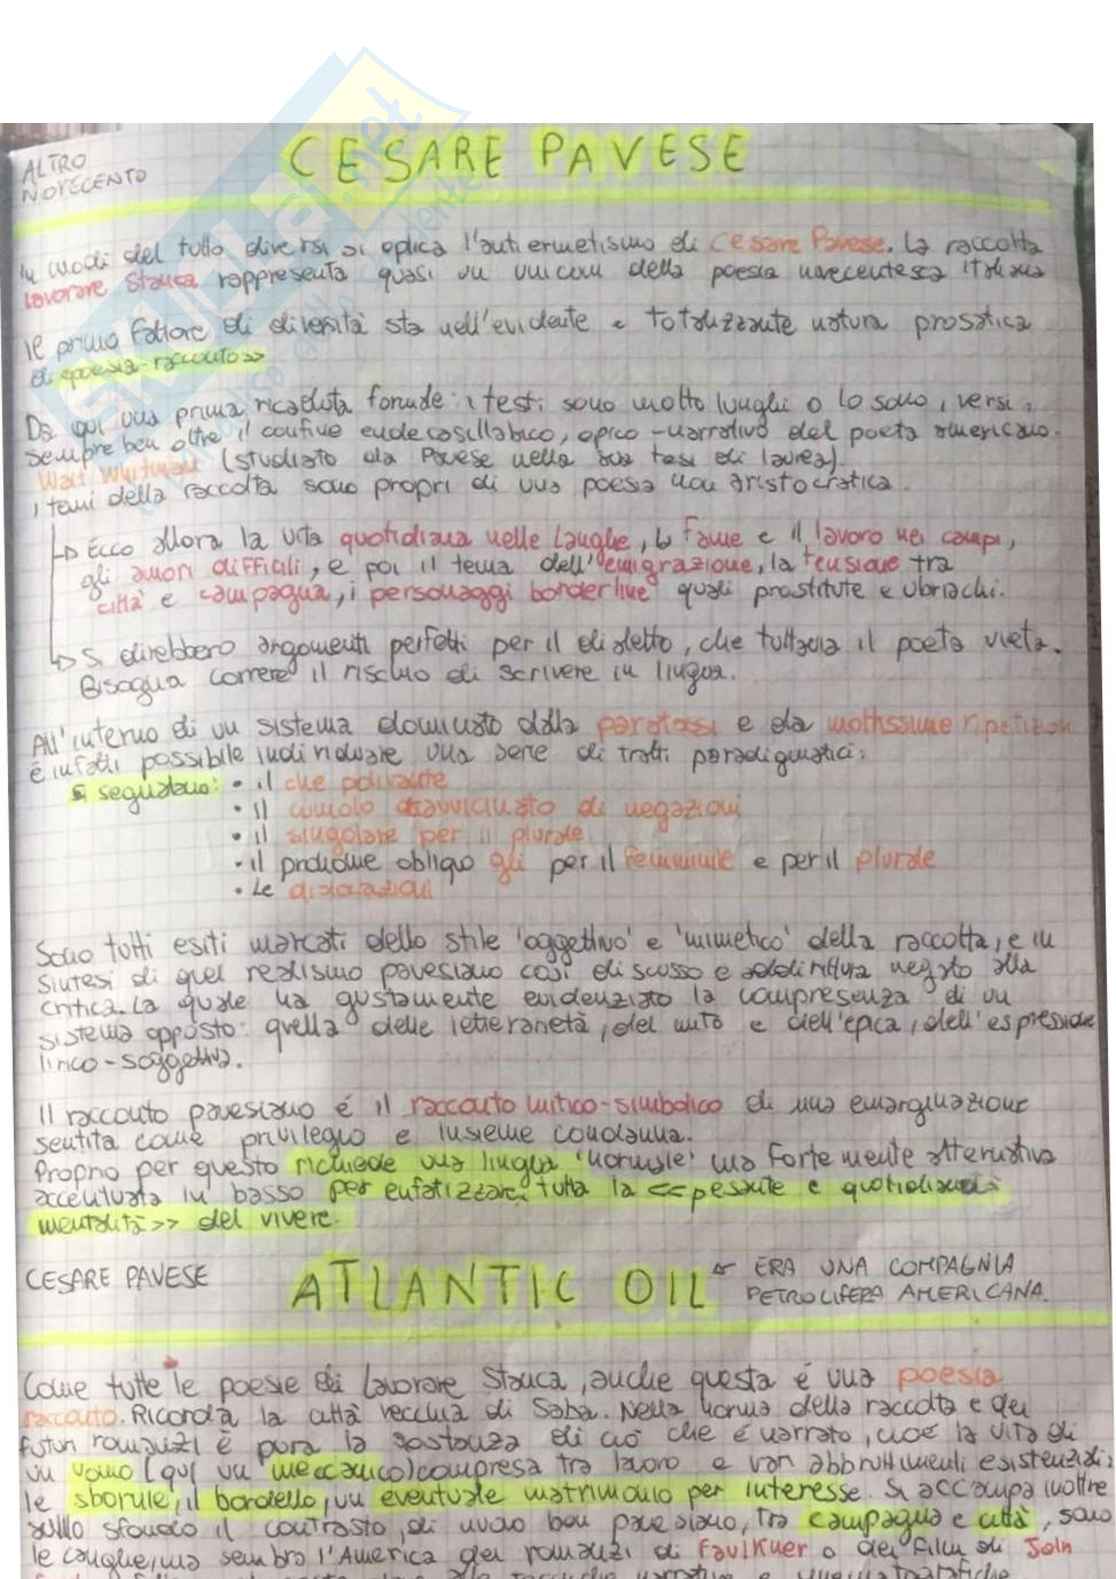 ALTRO
NOVECENTO
CESARE PAVESE
In modi del tutto diversi si esplica l'antiermetismo di Cesare Pavese. La raccolta
Lavorare Stanca rappresenta quasi un unicum della poesia novecentesca italiana
Il primo fattore di diversità sta nell'evidente e totalizzante natura prosatica
di «poesia-racconto»
Da qui una prima ricaduta formale: i testi sono molto lunghi o lo sono i versi,
sempre ben oltre il confine endecasillabico, epico-narrativo del poeta americano
Walt Whitman (studiato da Pavese nella sua tesi di laurea)
i temi della raccolta sono propri di una poesia non aristocratica.
Ecco allora la vita quotidiana nelle Langhe, la fame e il lavoro nei campi,
gli amori difficili, e poi il tema dell'emigrazione, la tensione tra
città e campagna, i personaggi borderline quali prostitute e ubriachi.
Si direbbero argomenti perfetti per il dialetto, che tuttavia il poeta vieta.
Bisogna correre il rischio di scrivere in lingua.
All'interno di un sistema dominato dalla paratassi e da moltissime ripetizioni
è infatti possibile individuare una serie di tratti paradigmatici:
Si segnalano: • il che polivalente
• il cumulo ravvicinato di negazioni
• il singolare per il plurale
• il pronome obliquo gli per il femminile e per il plurale
• Le dislocazioni
Sono tutti esiti marcati dello stile 'oggettivo' e 'mimetico' della raccotta, e in
sintesi di quel realismo pavesiano così discusso e addirittura negato alla
critica. La quale ha giustamente evidenziato la compresenza di un
sistema opposto: quella delle letterarietà, del mito e dell'epica, dell'espressione
lirico-soggettiva.
Il racconto pavesiano é il racconto mitico-simbolico di una emarginazione
sentita come privilegio e insieme condanna.
Proprio per questo richiede una lingua 'normale' ma fortemente alternativa
accentuata in basso per enfatizzare tutta la <<pesante e quotidiana
mentalità>> del vivere.
CESARE PAVESE
ATLANTIC OIL
ERA UNA COMPAGNIA
PETROLIFERA AMERICANA.
Come tutte le poesie di Lavorare Stanca, anche questa é una poesia
racconto. Ricorda la città vecchia di Saba. Nella norma della raccolta e dei
futuri romanzi è pura la sostanza di ciò che é narrato, cioè la vita di
un uomo (qui un meccanico) compresa tra lavoro e vari abbrutimenti esistenziali:
le sbornie, il bordello, un eventuale matrimonio per interesse. Si accampa inoltre
sullo sfondo il contrasto, di nuovo ben pavesiano, tra campagna e città, sono
le Langhe, ma sembra l'America dei romanzi di Faulkner o dei film di John